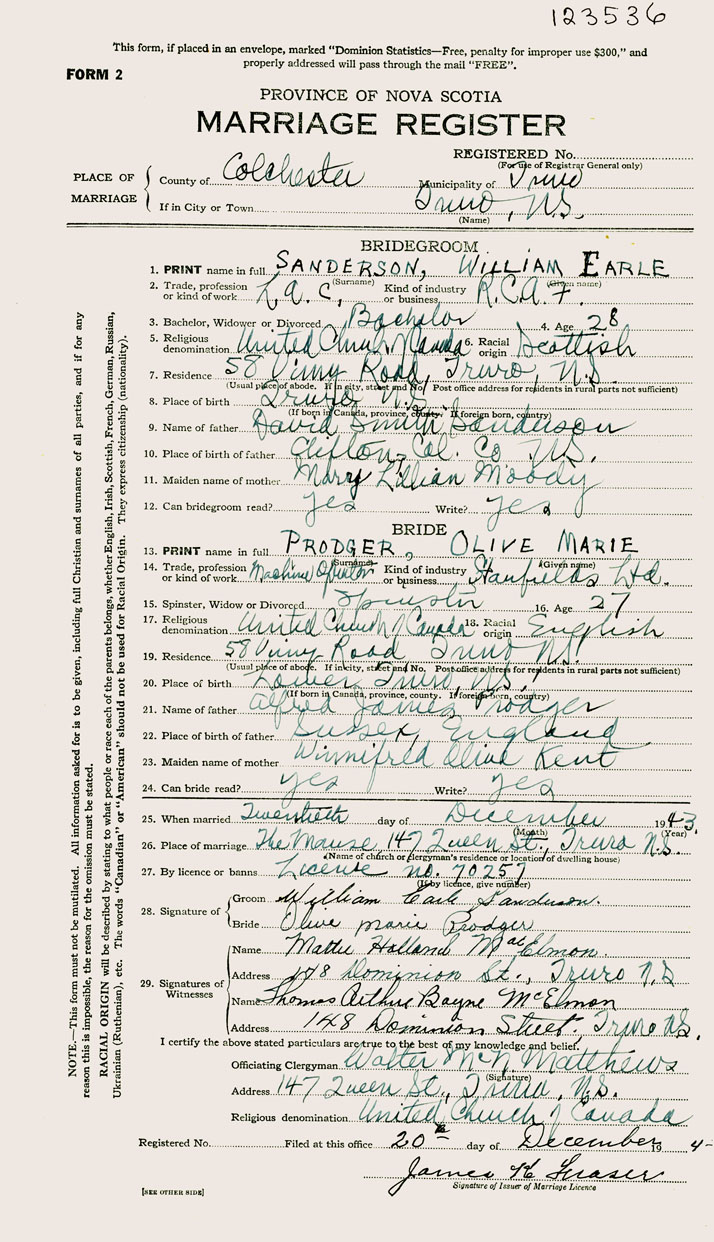 123536
This form, if placed in an envelope, marked "Dominion Statistics—Free, penalty for improper use $300," and
properly addressed will pass through the mail "FREE".
FORM 2
PROVINCE OF NOVA SCOTIA
MARRIAGE REGISTER
REGISTERED No.
(For use of Registrar General only)
PLACE OF MARRIAGE
County of Colchester Municipality of Truro
If in City or Town Truro, N.S.
(Name)
BRIDEGROOM
1. PRINT name in full SANDERSON, WILLIAM EARLE
(Surname) (Given name)
2. Trade, profession or kind of work L.a.c, Kind of industry or business R.C.A.F.
3. Bachelor, Widower or Divorced Bachelor 4. Age 28
5. Religious denomination United Church of Canada 6. Racial origin Scottish
7. Residence 58 Vimy Road, Truro, N.S.
(Usual place of abode. If in city, street and No. Post office address for residents in rural parts not sufficient)
8. Place of birth Truro N.S.
(If born in Canada, province, county. If foreign born, country)
9. Name of father David Smith Sanderson
10. Place of birth of father Clifton, Col. Co N.S.
11. Maiden name of mother Mary Lillian Moody
12. Can bridegroom read? yes Write? yes
BRIDE
13. PRINT name in full PRODGER, OLIVE MARIE
(Surname) (Given name)
14. Trade, profession or kind of work Machine Operator Kind of industry or business Stanfields Ltd.
15. Spinster, Widow or Divorced Spinster 16. Age 27
17. Religious denomination United Church of Canada 18. Racial origin English
19. Residence 58 Vimy Road Truro N.S.
(Usual place of abode. If in city, street and No. Post office address for residents in rural parts not sufficient)
20. Place of birth Lower Truro, N.S.,
(If born in Canada, province, county. If foreign born, country)
21. Name of father Alfred James Prodger
22. Place of birth of father Sussex, England
23. Maiden name of mother Winnifred Olive Kent
24. Can bride read? yes Write? yes
25. When married Twentieth day of December 1943.
(Month) (Year)
26. Place of marriage The Manse, 147 Queen St., Truro N.S.
(Name of church or clergyman's residence or location of dwelling house)
27. By licence or banns License no. 70257
(If by licence, give number)
28. Signature of
Groom William Earle Sanderson.
Bride Olive Marie Prodger
29. Signatures of Witnesses
Name Mattie Holland MacElmon.
Address 148 Dominion St., Truro N.S
Name Thomas Arthur Bayne McElmon
Address 148 Dominion Street, Truro N.S.
I certify the above stated particulars are true to the best of my knowledge and belief.
Officiating Clergyman Walter McN Matthews
(Signature)
Address 147 Queen St., Truro, N.S.
Religious denomination United Church of Canada
Registered No. Filed at this office 20th day of December 19 4
James H Fraser
Signature of Issuer of Marriage Licence
[SEE OTHER SIDE]
NOTE.—This form must not be mutilated. All information asked for is to be given, including full Christian and surnames of all parties, and if for any
reason this is impossible, the reason for the omission must be stated.
RACIAL ORIGIN will be described by stating to what people or race each of the parents belongs, whether English, Irish, Scottish, French, German, Russian,
Ukrainian (Ruthenian), etc. The words "Canadian" or "American" should not be used for Racial Origin. They express citizenship (nationality).